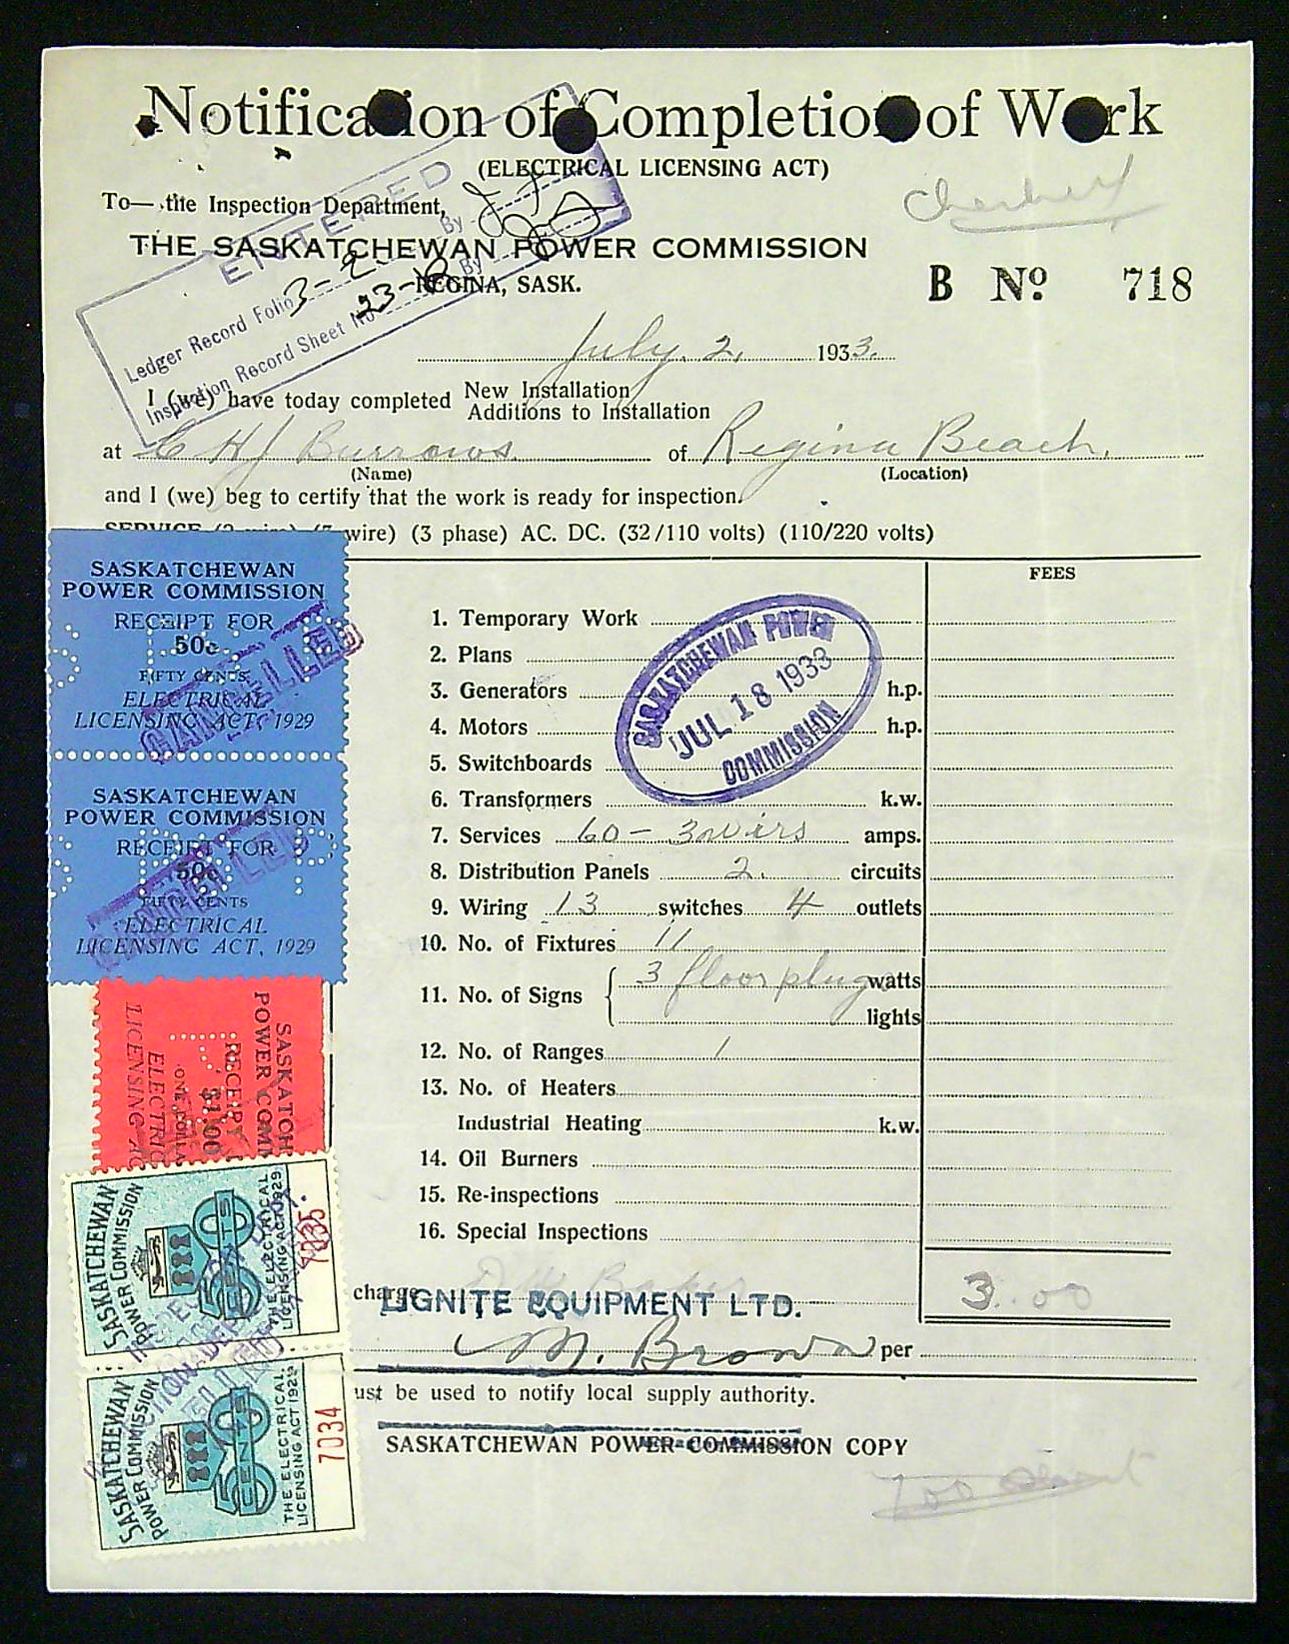 Notification of Completion of Work
(ELECTRICAL LICENSING ACT)
To— the Inspection Department,
THE SASKATCHEWAN POWER COMMISSION
REGINA, SASK.
B No. 718
ENTERED
Ledger Record Folio 3-2 By
Inspection Record Sheet No. 23- By
July 2, 1933.
I (we) have today completed New Installation
Additions to Installation
at C H J Burrows. of Regina Beach.
(Name) (Location)
and I (we) beg to certify that the work is ready for inspection.
SERVICE wire) (3 phase) AC. DC. (32/110 volts) (110/220 volts)
FEES
1. Temporary Work
2. Plans
3. Generators h.p.
4. Motors h.p.
5. Switchboards
6. Transformers k.w.
7. Services 60 - 3 wires amps.
8. Distribution Panels 2. circuits
9. Wiring 13 switches 4 outlets
10. No. of Fixtures 11
11. No. of Signs 3 floor plugs watts
lights
12. No. of Ranges 1
13. No. of Heaters
Industrial Heating k.w.
14. Oil Burners
15. Re-inspections
16. Special Inspections
SASKATCHEWAN POWER COMMISSION
JUL 18 1933
charge 3.00
LIGNITE EQUIPMENT LTD.
M. Brown per
ust be used to notify local supply authority.
SASKATCHEWAN POWER COMMISSION COPY
SASKATCHEWAN
POWER COMMISSION
RECEIPT FOR
50c
FIFTY CENTS
ELECTRICAL
LICENSING ACT, 1929
CANCELLED
SASKATCHEWAN
POWER COMMISSION
RECEIPT FOR
50c
FIFTY CENTS
ELECTRICAL
LICENSING ACT, 1929
CANCELLED
SASKATCH
POWER COMM
RECEIP
$1.00
ONE DOLLA
ELECTRIC
LICENSING AC
SASKATCHEWAN
POWER COMMISSION
50 CENTS
THE ELECTRICAL
LICENSING ACT 1929
7035
SASKATCHEWAN
POWER COMMISSION
50 CENTS
THE ELECTRICAL
LICENSING ACT 1929
7034